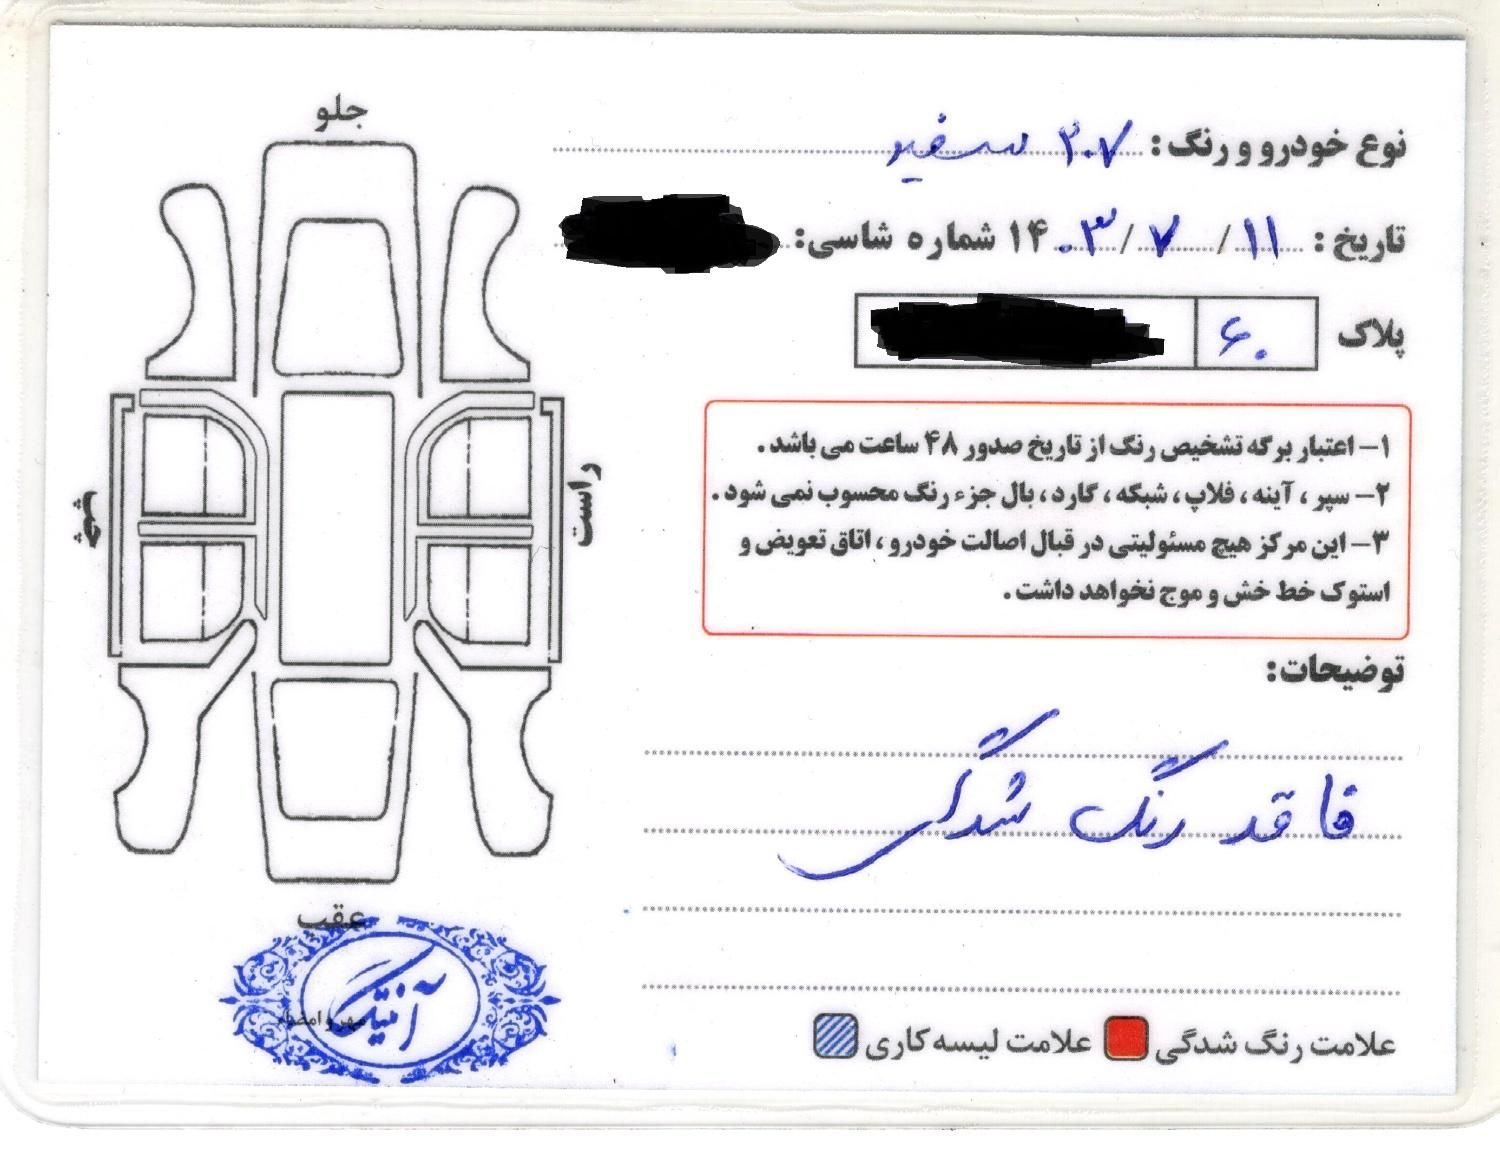 نوع خودرو و رنگ: ۲۰۷ سفید
تاریخ: ۱۱ / ۷ / ۱۴۰۳ شماره شاسی:
پلاک ۶۰
۱– اعتبار برگه تشخیص رنگ از تاریخ صدور ۴۸ ساعت می باشد.
۲– سپر، آینه، فلاپ، شبکه، گارد، بال جزء رنگ محسوب نمی شود.
۳– این مرکز هیچ مسئولیتی در قبال اصالت خودرو، اتاق تعویض و
استوک خط خش و موج نخواهد داشت.
توضیحات:
فاقد رنگ شدگی
علامت رنگ شدگی علامت لیسه کاری
جلو
راست
چپ
عقب
مهر و امضاء
آنتیک